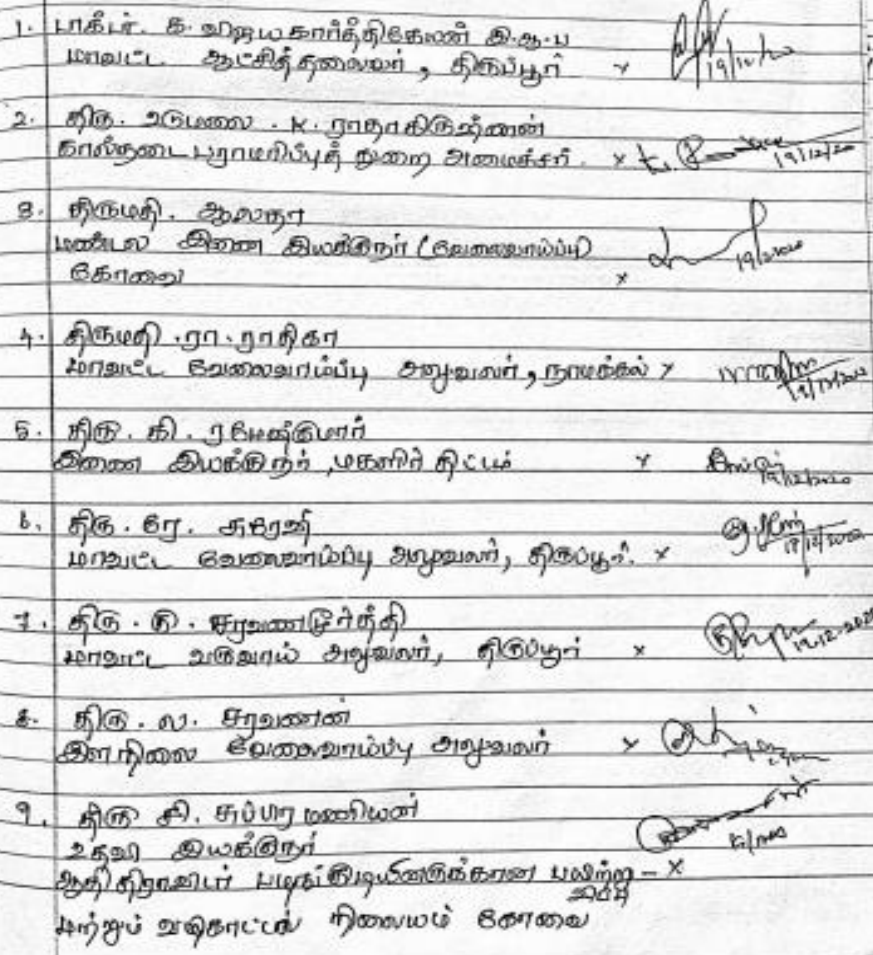 1. டாக்டர். க. விஜயகார்த்திகேயன் இ.ஆ.ப
மாவட்ட ஆட்சித்தலைவர், திருப்பூர் x 19/12/20
2. திரு. உடுமலை . K. ராதாகிருஷ்ணன்
கால்நடை பராமரிப்புத் துறை அமைச்சர். x 19/12/20
3. திருமதி. ஆ.லதா
மண்டல இணை இயக்குநர் (வேலைவாய்ப்பு)
கோவை x
4. திருமதி .ரா. ராதிகா
மாவட்ட வேலைவாய்ப்பு அலுவலர், நாமக்கல் x
5. திரு. கி. ரமேஷ்குமார்
இணை இயக்குநர், மகளிர் திட்டம் x 19/12/2020
6. திரு. ரே. சுரேஷ்
மாவட்ட வேலைவாய்ப்பு அலுவலர், திருப்பூர். x 19/12/2020
7. திரு. கு. சரவணமூர்த்தி
மாவட்ட வருவாய் அலுவலர், திருப்பூர் x 19.12.2020
8. திரு. ல. சரவணன்
இளநிலை வேலைவாய்ப்பு அலுவலர் x
9. திரு சி. சுப்பிரமணியன்
உதவி இயக்குநர்
ஆதிதிராவிடர் பழங்குடியினருக்கான பயிற்சி - x
மற்றும் வழிகாட்டல் நிலையம் கோவை